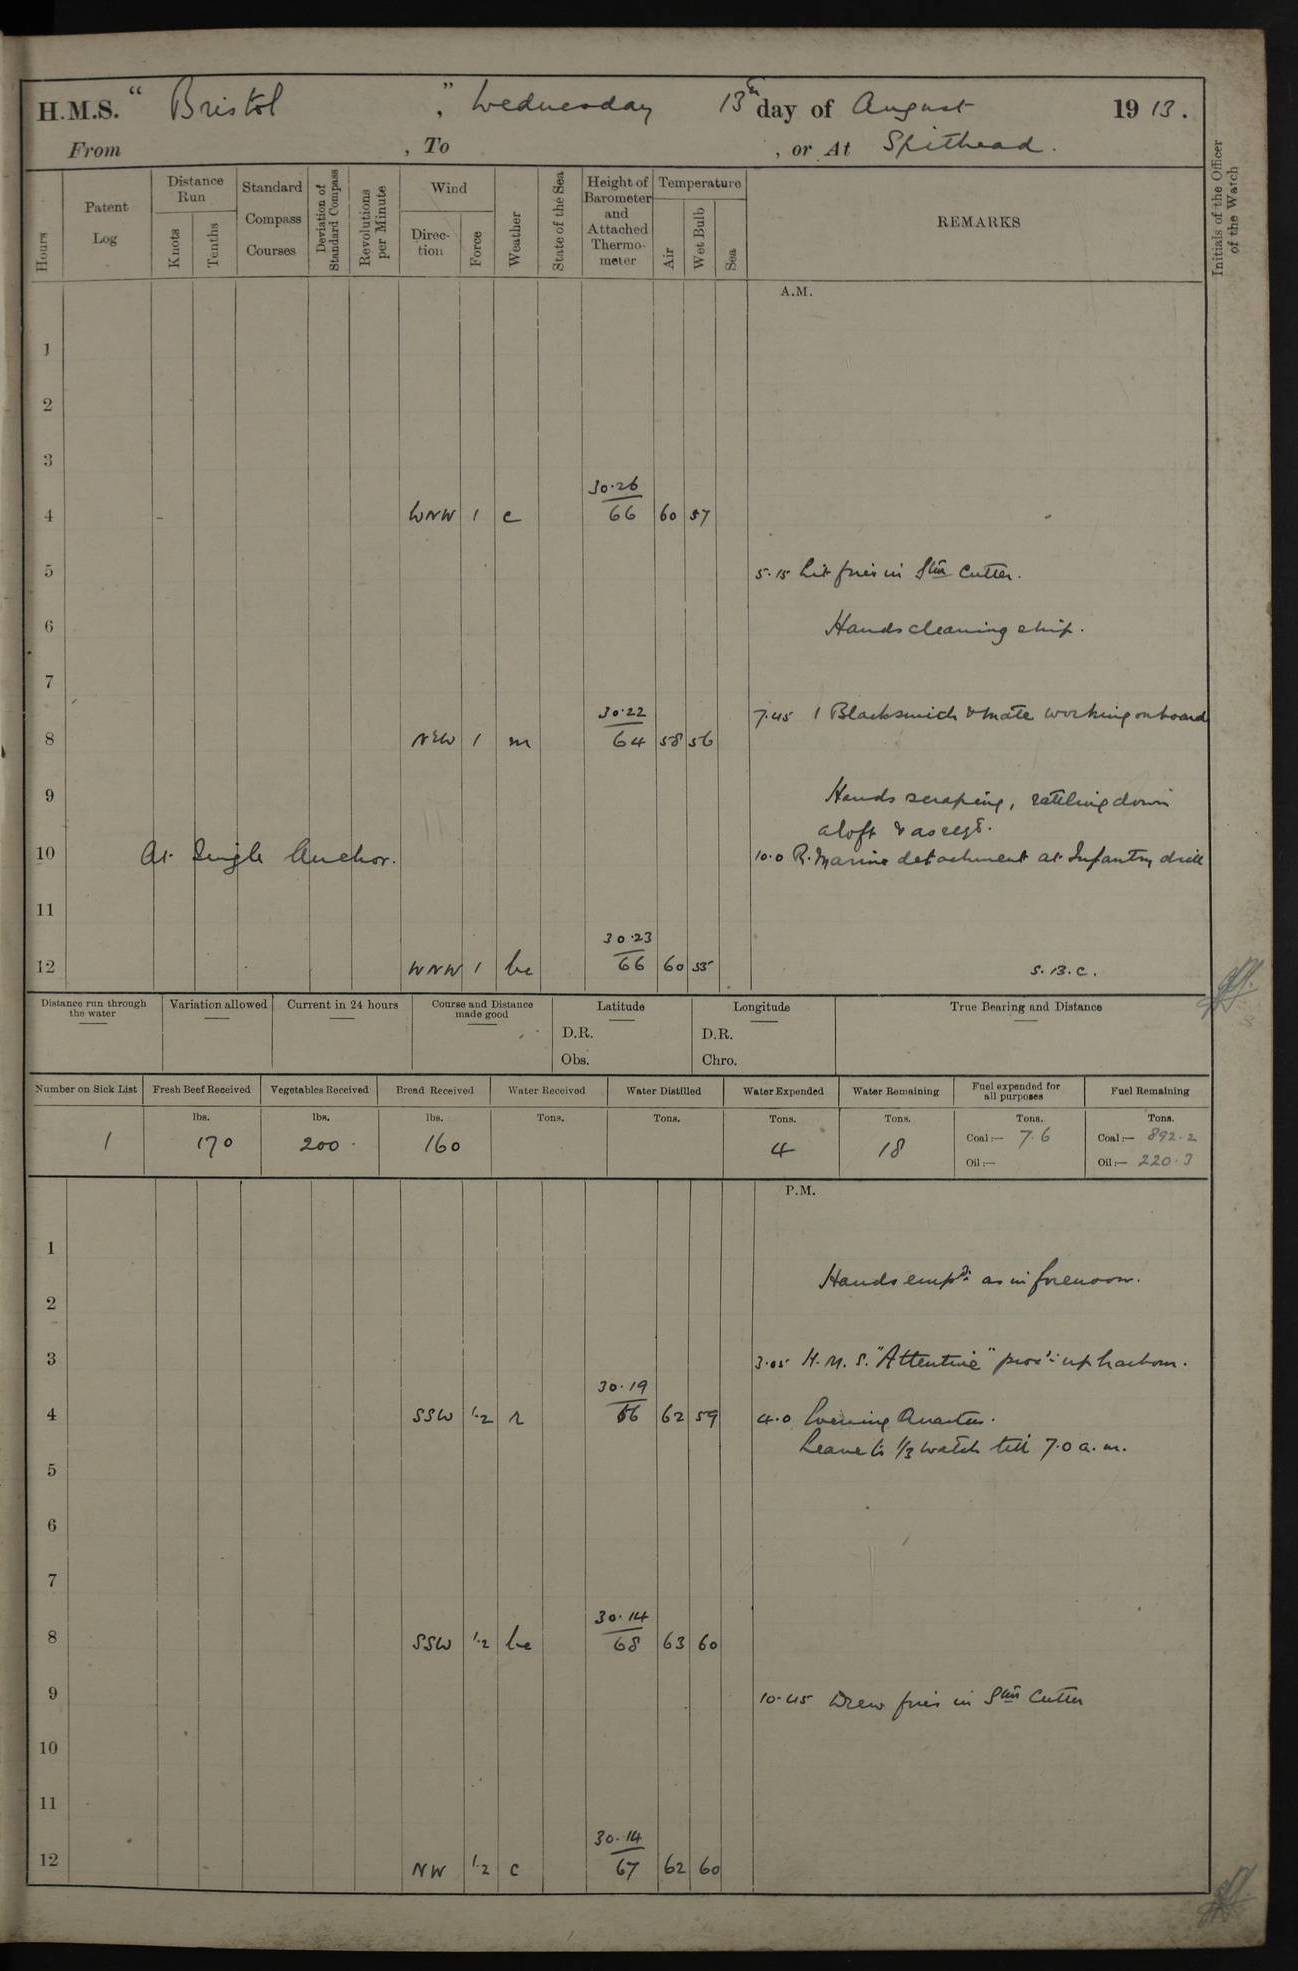 H.M.S. " Bristol ", Wednesday 13th day of August 1913.
From , To , or At Spithead.
Hours
Patent Log
Distance Run
Knots
Tenths
Standard Compass Courses
Deviation of Standard Compass
Revolutions per Minute
Wind
Direction
Force
Weather
State of the Sea
Height of Barometer and Attached Thermometer
Temperature
Air
Wet Bulb
Sea
REMARKS
Initials of the Officer of the Watch
A.M.
1
2
3
30.26
4 WNW 1 c 66 60 57
5 5.15 Lit fires in Stm Cutter.
6 Hands cleaning ship.
7
30.22 7.45 1 Blacksmith & mate working onboard
8 1 m 64 58 56
9 Hands scraping, rattling down
aloft & as reqd.
10 At Single Anchor. 10.0 R. Marine detachment at Infantry drill
11
30.23
12 WNW 1 bc 66 60 55 S.B.C.
Distance run through the water
Variation allowed
Current in 24 hours
Course and Distance made good
Latitude
D.R.
Obs.
Longitude
D.R.
Chro.
True Bearing and Distance
Number on Sick List
1
Fresh Beef Received
lbs.
170
Vegetables Received
lbs.
200
Bread Received
lbs.
160
Water Received
Tons.
Water Distilled
Tons.
Water Expended
Tons.
4
Water Remaining
Tons.
18
Fuel expended for all purposes
Tons.
Coal:— 7.6
Oil:—
Fuel Remaining
Tons.
Coal:— 892.2
Oil:— 220.3
P.M.
1
Hands empd. as in forenoon.
2
3 3.05 H.M.S. "Attentive" procd. up harbour.
30.19
4 SSW 1.2 r 66 62 59 4.0 Evening Quarters.
Leave to 1/3 watch till 7.0 a.m.
5
6
7
30.14
8 SSW 1.2 bc 68 63 60
9 10.45 Drew fires in Stm Cutter
10
11
30.14
12 NW 1.2 c 67 62 60